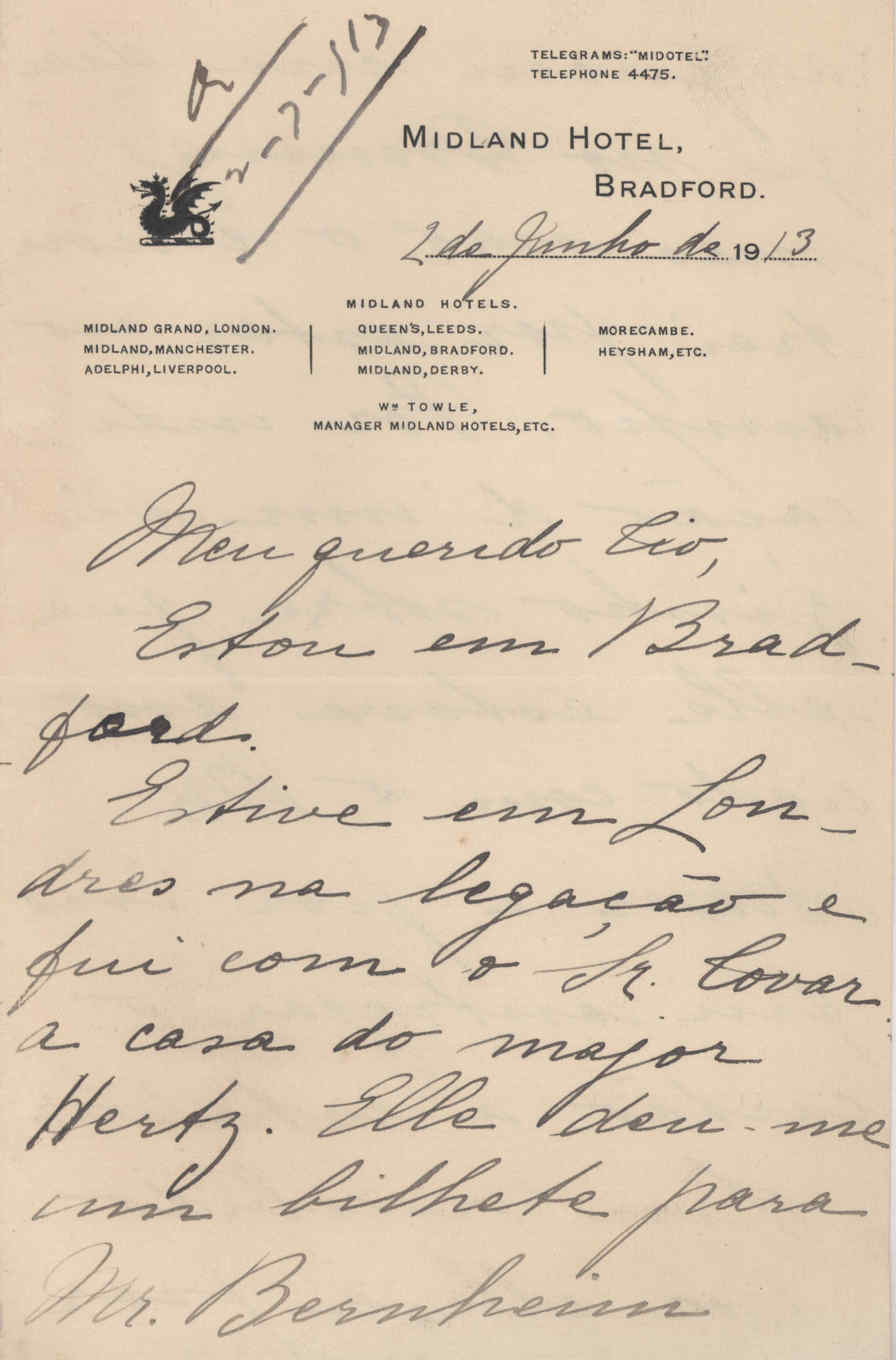 2-7-913
TELEGRAMS: "MIDOTEL".
TELEPHONE 4475.
MIDLAND HOTEL,
BRADFORD.
2 de Junho de 1913
MIDLAND HOTELS.
MIDLAND GRAND, LONDON.
MIDLAND, MANCHESTER.
ADELPHI, LIVERPOOL.
QUEEN'S, LEEDS.
MIDLAND, BRADFORD.
MIDLAND, DERBY.
MORECAMBE.
HEYSHAM, ETC.
WM TOWLE,
MANAGER MIDLAND HOTELS, ETC.
Meu querido tio,
Estou em Brad-
ford.
Estive em Lon-
dres na legação e
fui com o Sr. Covar
a casa do major
Hertz. Elle deu-me
um bilhete para
Mr. Bernheim